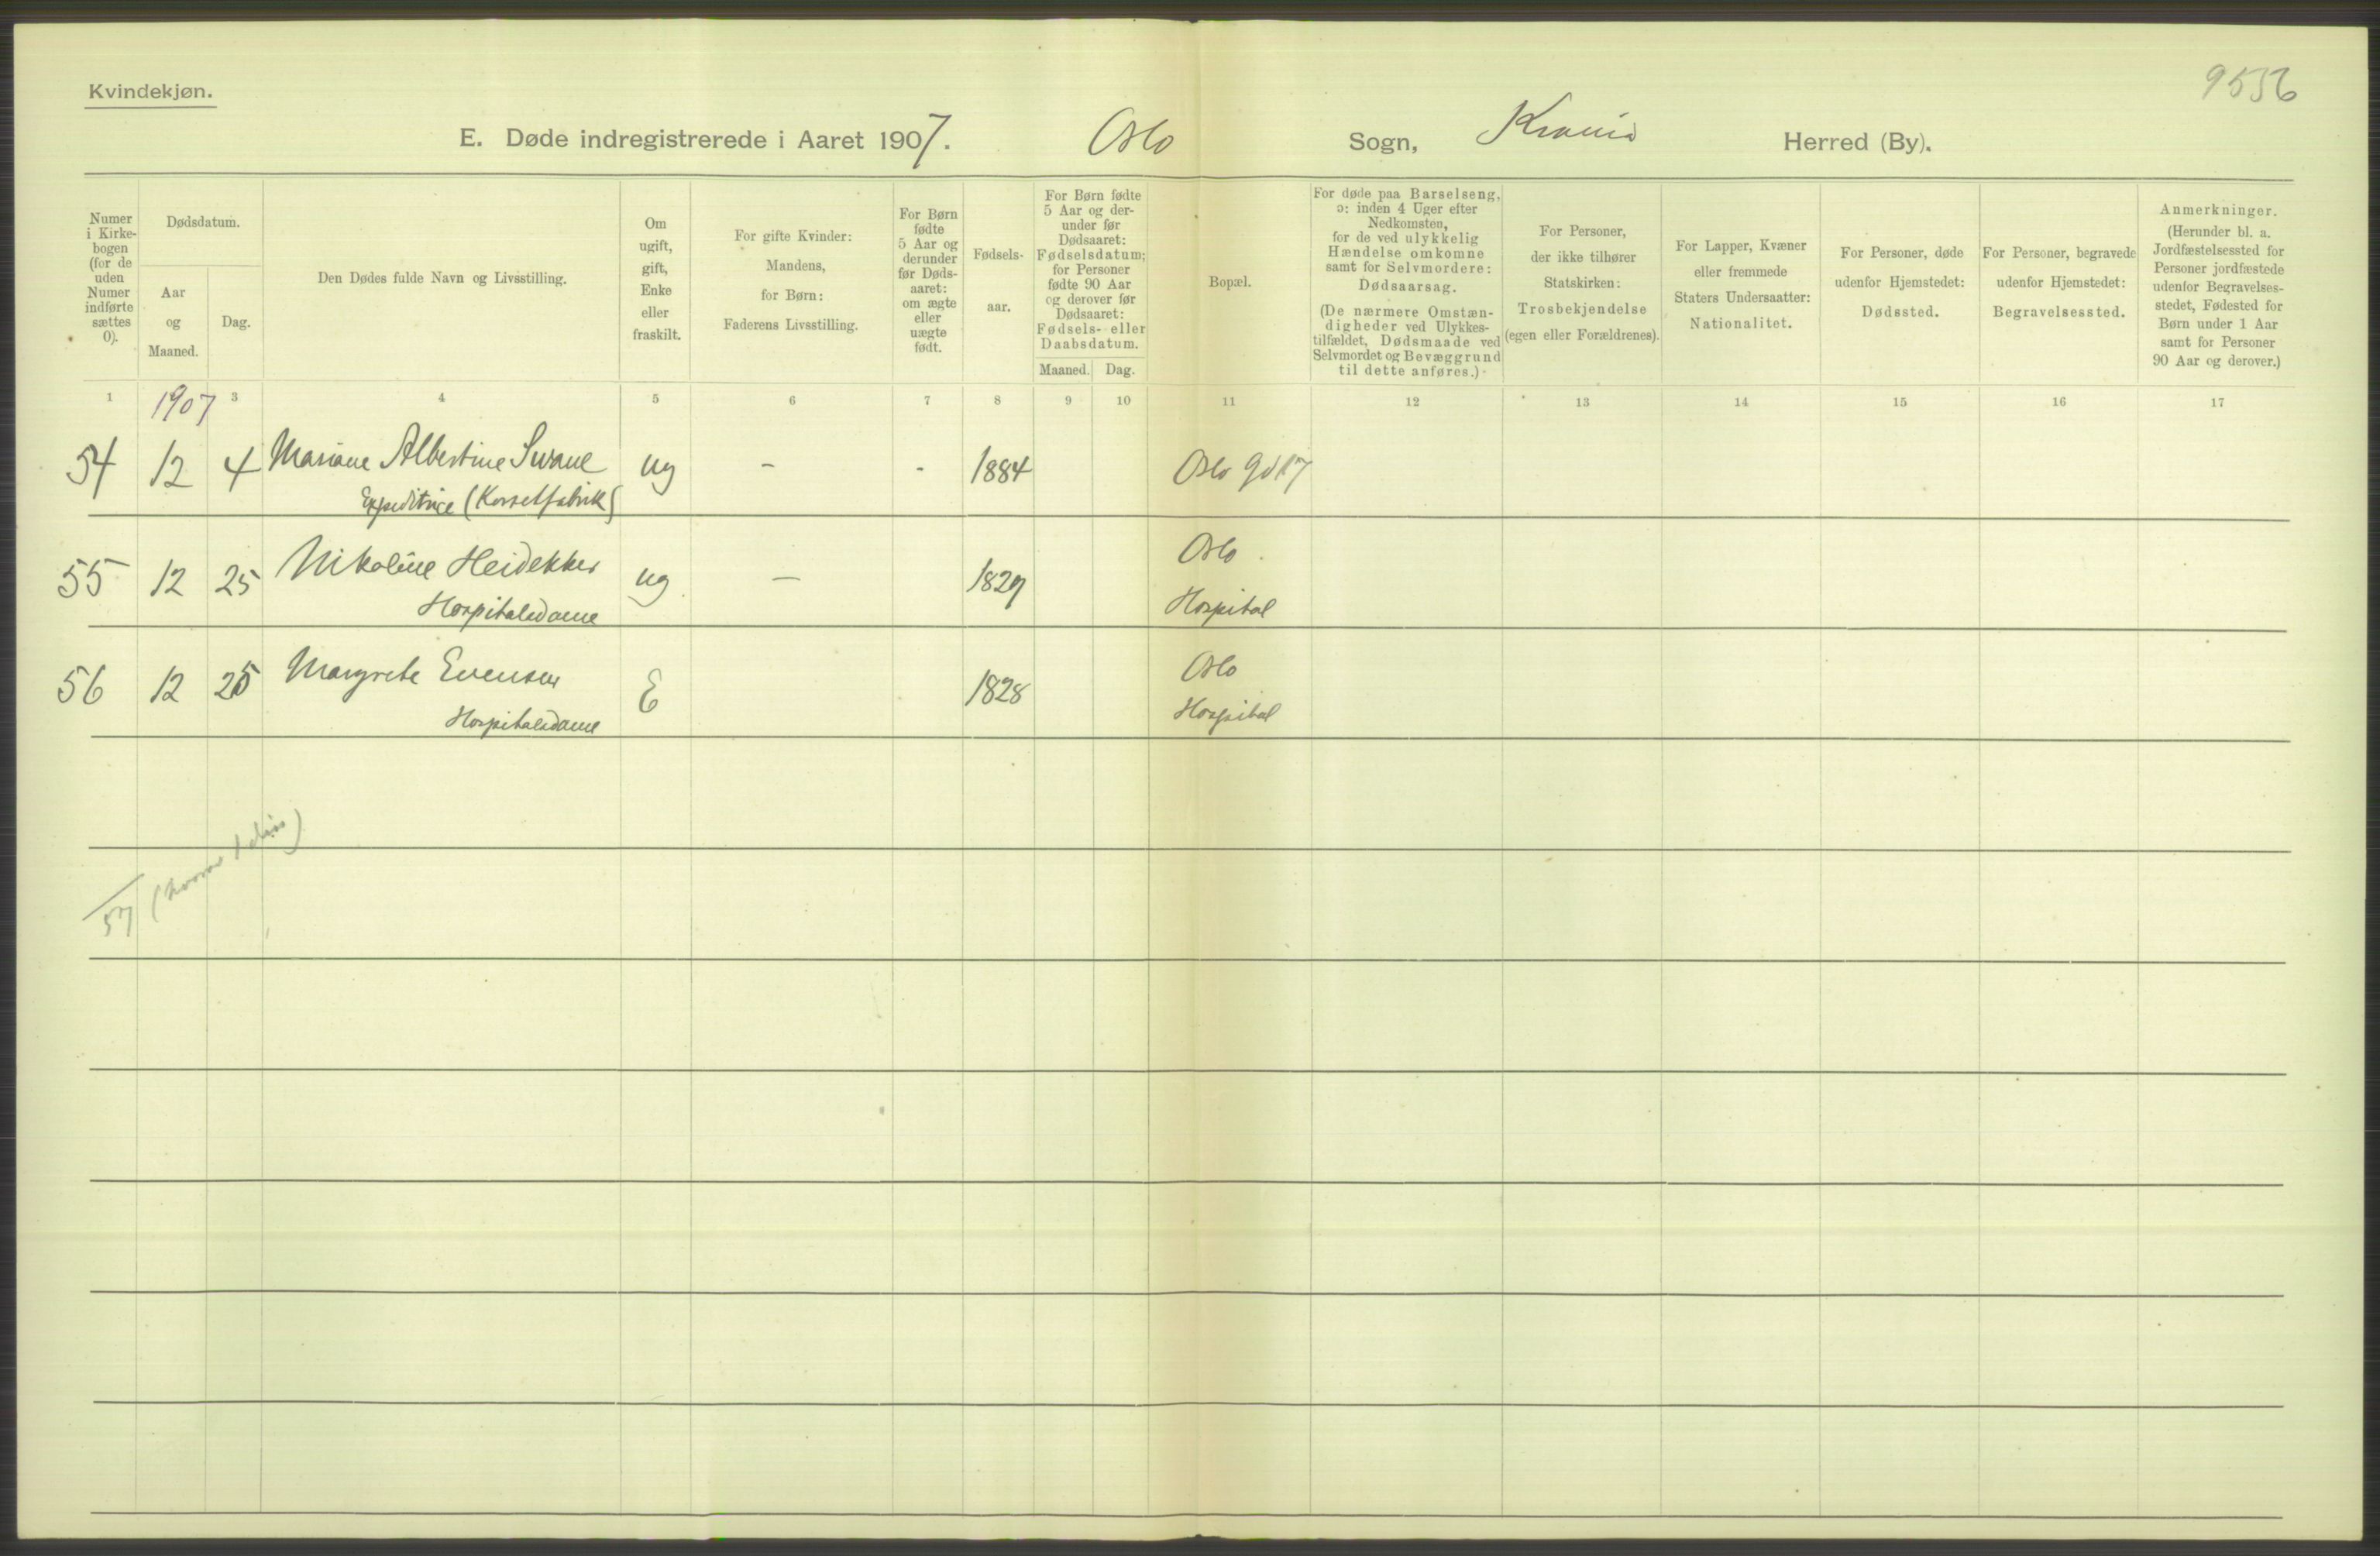 Kvindekjøn.
9556
E. Døde indregistrerede i Aaret 1907. Oslo Sogn, Krania Herred (By).
Numer i Kirkebogen (for de uden Numer indførte sættes 0).
Dødsdatum.
Aar og Maaned.
Dag.
Den Dødes fulde Navn og Livsstilling.
Om ugift, gift, Enke eller fraskilt.
For gifte Kvinder: Mandens, for Børn: Faderens Livsstilling.
For Børn fødte 5 Aar og derunder før Dødsaaret: om ægte eller uægte født.
Fødselsaar.
For Børn fødte 5 Aar og derunder før Dødsaaret: Fødselsdatum; for Personer fødte 90 Aar og derover før Dødsaaret: Fødsels- eller Daabsdatum.
Maaned. Dag.
Bopæl.
For døde paa Barselseng, ɔ: inden 4 Uger efter Nedkomsten, for de ved ulykkelig Hændelse omkomne samt for Selvmordere: Dødsaarsag.
(De nærmere Omstændigheder ved Ulykkestilfældet, Dødsmaade ved Selvmordet og Bevæggrund til dette anføres.)
For Personer, der ikke tilhører Statskirken: Trosbekjendelse (egen eller Forældrenes).
For Lapper, Kvæner eller fremmede Staters Undersaatter: Nationalitet.
For Personer, døde udenfor Hjemstedet: Dødssted.
For Personer, begravede udenfor Hjemstedet: Begravelsessted.
Anmerkninger. (Herunder bl. a. Jordfæstelsessted for Personer jordfæstede udenfor Begravelsesstedet, Fødested for Børn under 1 Aar samt for Personer 90 Aar og derover.)
1 3 4 5 6 7 8 9 10 11 12 13 14 15 16 17
1907
54 12 4 Mariane Albertine Svane ug - - 1884 Oslo gd 17
Expeditrice (Korsetfabrik)
55 12 25 Nikoline Heidekker ug — 1829 Oslo
Hospitalsdame Hospital
56 12 25 Margrete Evensen E 1828 Oslo
Hospitalsdame Hospital
57 (hvoraf 1